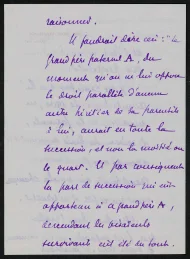 raisonné.
Il faudrait dire ici : "le
grand père paternel A, du
moment qu'on ne lui oppose
le droit parallèle d'aucun
autre héritier de sa parentèle
à lui, aurait eu toute la
succession, et non la moitié ou
le quart. Et par conséquent
la part de succession qui eût
appartenu à ce grand père A,
cependant les
survivants eût été du tout.